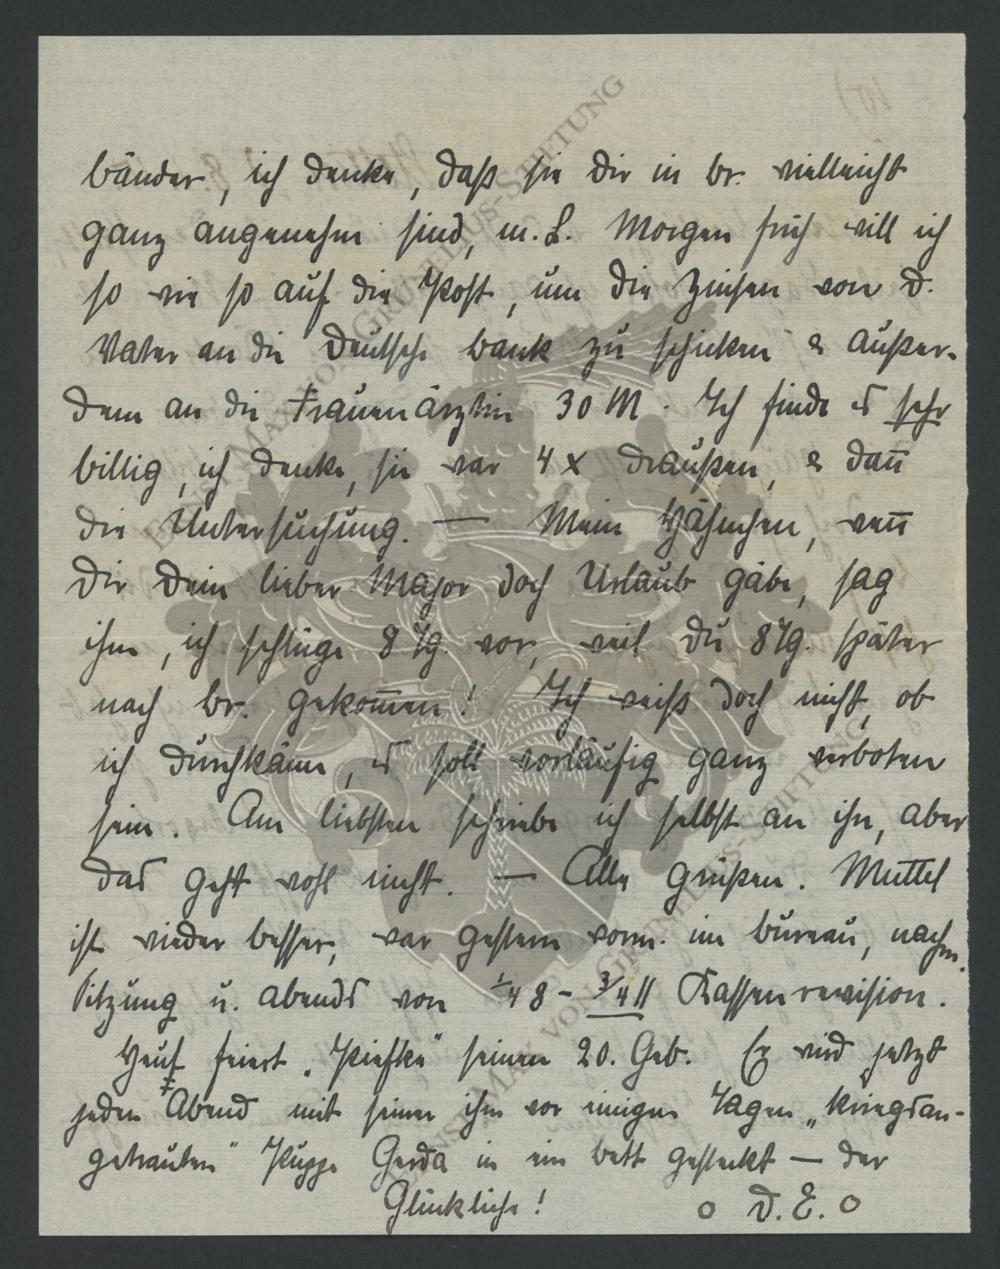 bänder, ich denke, daß sie dir in Br. vielleicht
ganz angenehm sind, m. L. Morgen früh will ich
so wie so auf die Post, um die Zinsen von D.
Vater an die Deutsche Bank zu schicken & außer-
dem an die Frauenärztin 30 M. Ich finde es sehr
billig, ich denke, sie war 4 x draußen, & dan̄
die Untersuchung. — Mein Hähnchen, wen̄
Dir Dein lieber Major doch Urlaub gäbe, sag
ihm, ich schlüge 8 Tg. vor, weil Du 8 Tg. später
nach Br. gekom̄en! Ich weiß doch nicht, ob
ich durchkäme, es soll vorläufig ganz verboten
sein. Am liebsten schriebe ich selbst an ihn, aber
das geht wohl nicht. — Alle grüßen. Muttel
ist wieder besser, war gestern vorm. im Bureau, nachm.
Sitzung u. abends von 1/4 8 - 3/4 11 Kassenrevision.
Heut feiert "Piefke" seinen 20. Geb. Er wird jetzt
jeden Abend mit seiner ihm vor einigen Tagen "kriegsan-
getrauten" Puppe Gerda in ein Bett gesteckt — der
Glückliche! o D. E. o
ERNST MAX VON GRUNELIUS-STIFTUNG
ERNST MAX VON GRUNELIUS-STIFTUNG